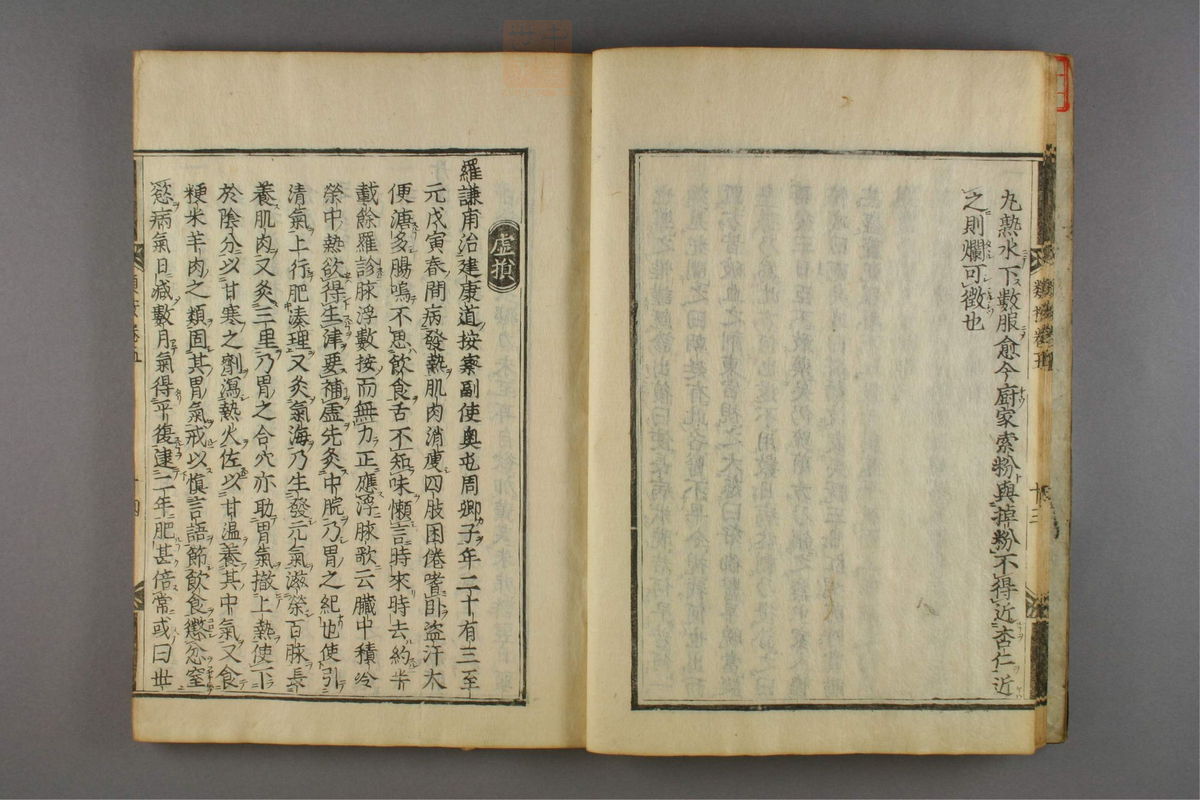 丸熱水下數服愈今廚家索粉與掉粉不得近杏仁近
之則爛可徵也
十三
虛損
羅謙甫治建康道按察副使奧屯周卿子年二十有三至
元戊寅春間病發熱肌肉消瘦四肢困倦嗜臥盜汗大
便溏多腸鳴不思飲食舌不知味懶言時來時去約半
載餘羅診脉浮數按而無力正應浮脉歌云臟中積冷
榮中熱欲得生津要補虛先灸中脘乃胃之紀也使引
清氣上行肥湊理又灸氣海乃生發元氣滋榮百脉長
養肌肉又灸三里乃胃之合穴亦助胃氣撤上熱使下
於陰分以甘寒之劑瀉熱火佐以甘温養其中氣又食
粳米羊肉之類固其胃氣戒以慎言語節飲食懲忿窒
慾病氣日減數月氣得平復逮二年肥甚倍常或曰世